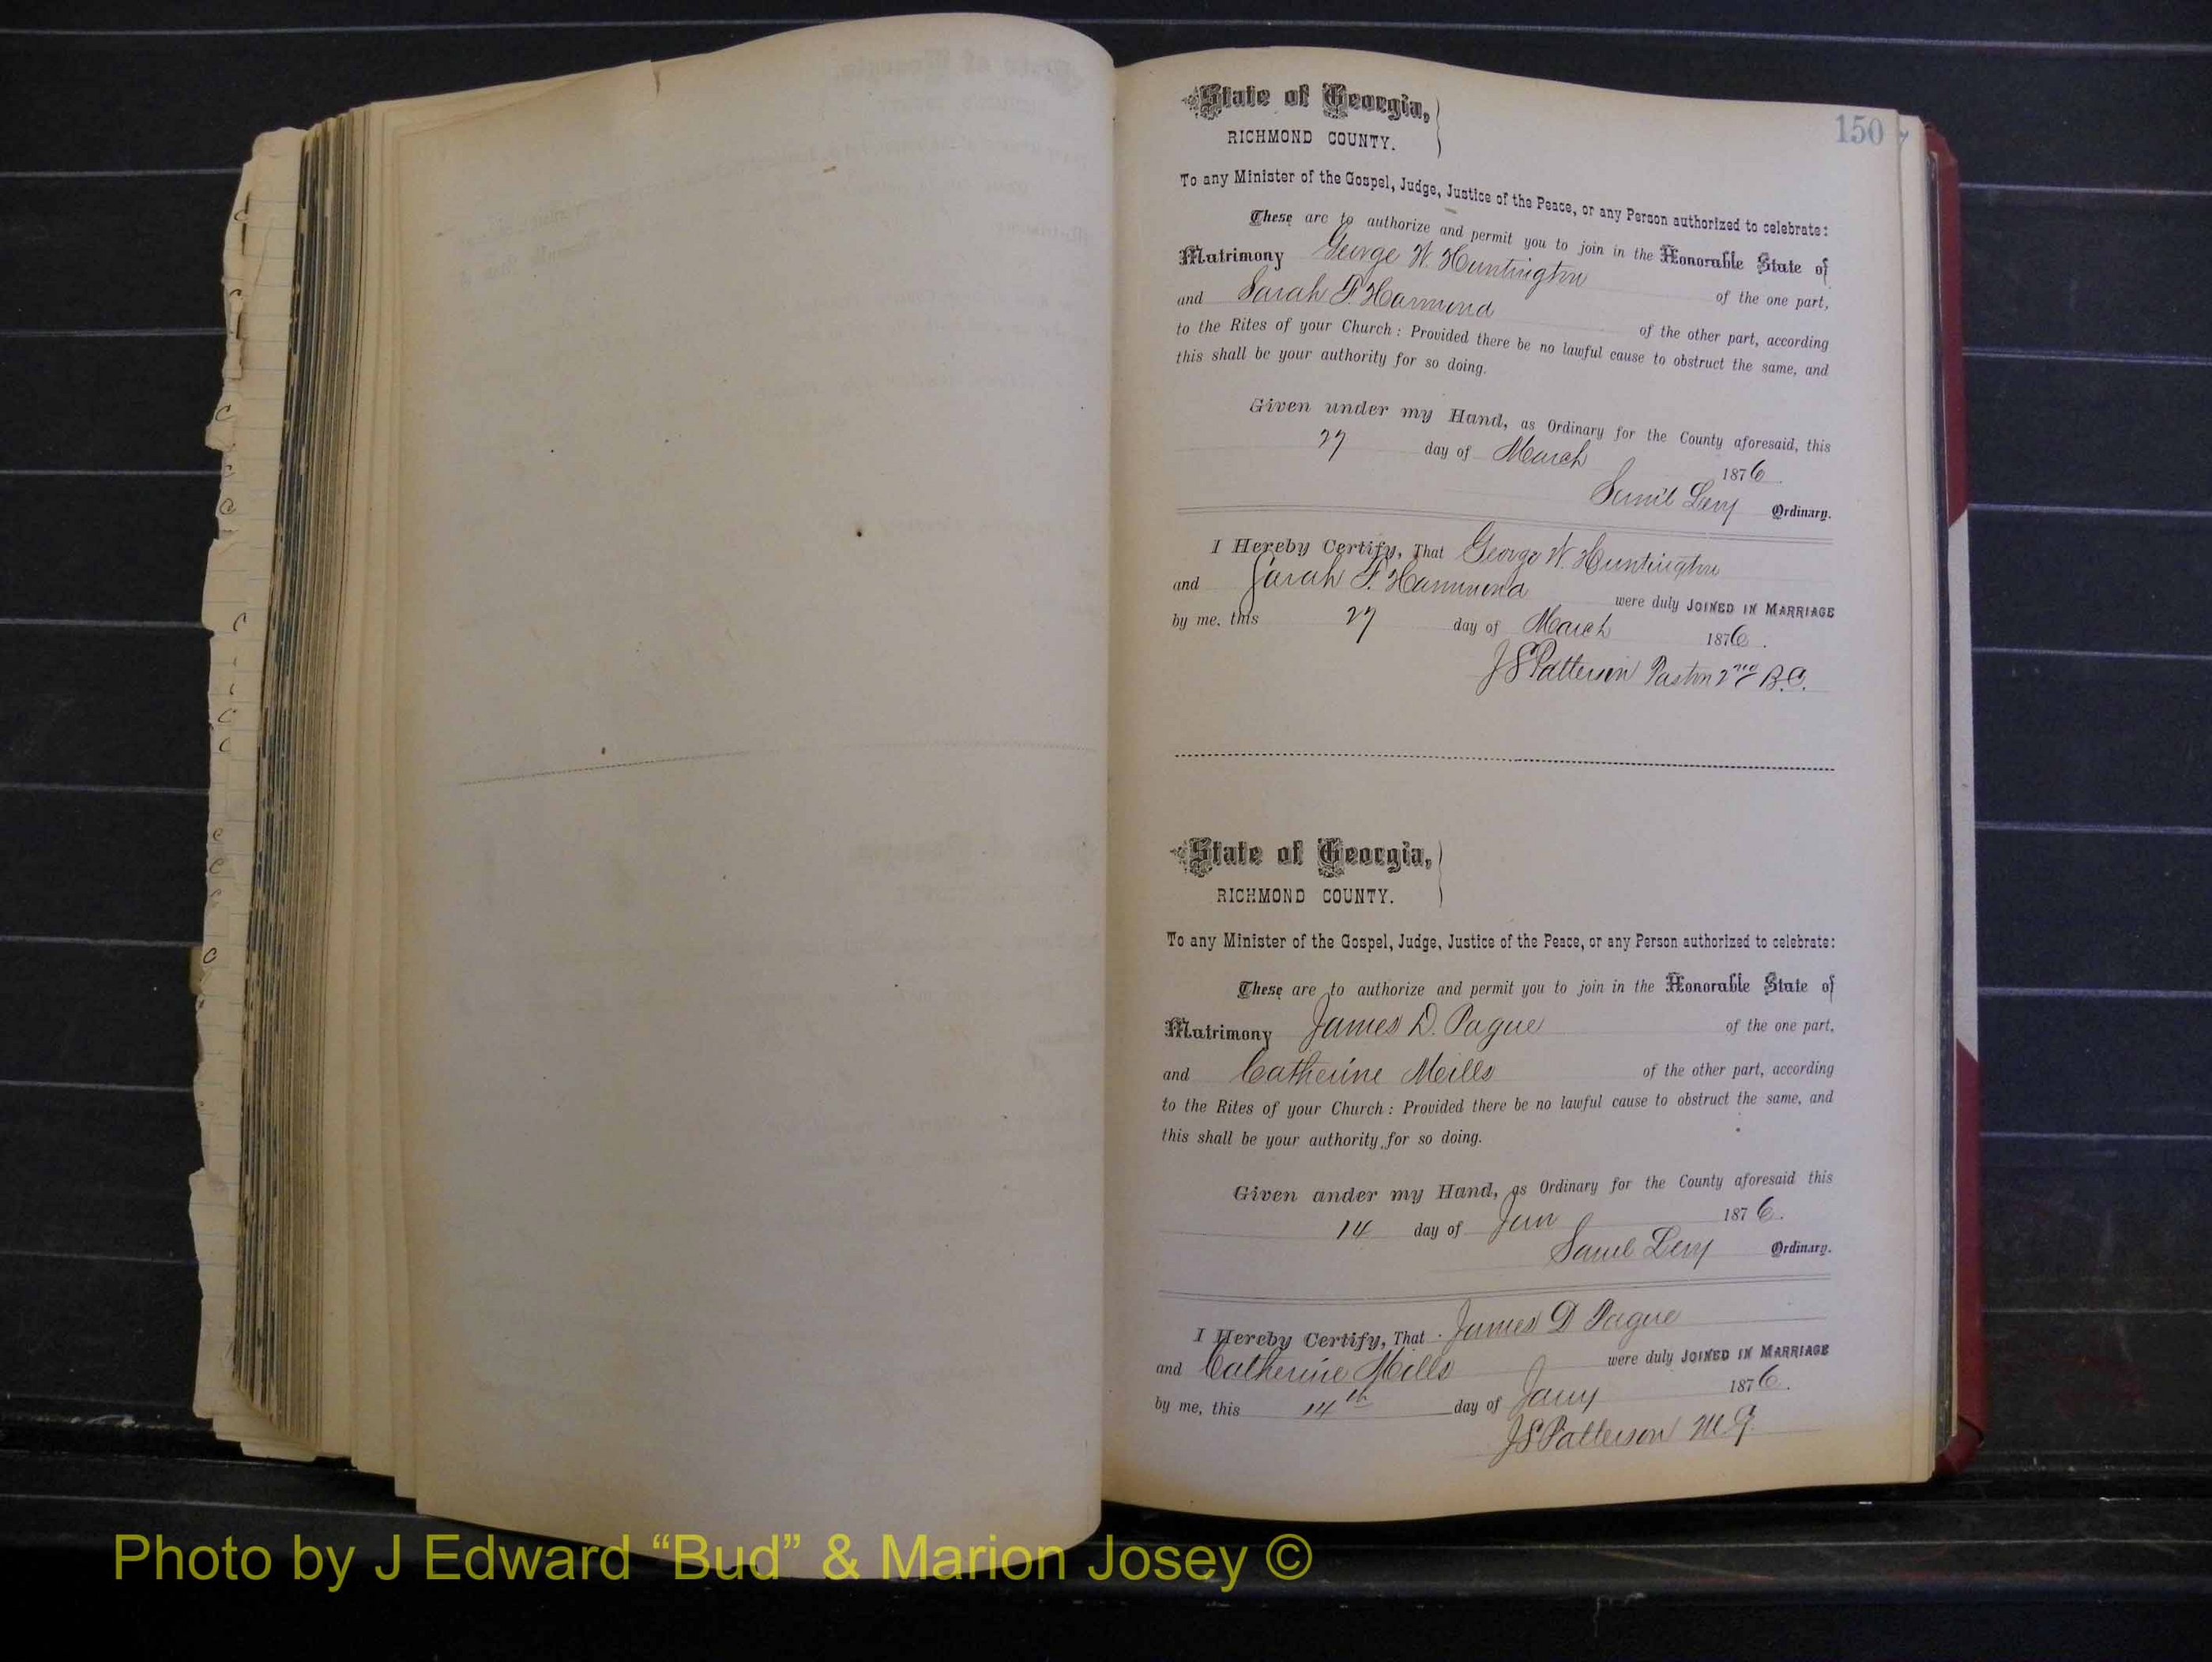 150
State of Georgia,
RICHMOND COUNTY.
To any Minister of the Gospel, Judge, Justice of the Peace, or any Person authorized to celebrate:
These are to authorize and permit you to join in the Honorable State of
Matrimony George W. Huntington of the one part,
and Sarah F. Hammond of the other part, according
to the Rites of your Church: Provided there be no lawful cause to obstruct the same, and
this shall be your authority for so doing.
Given under my Hand, as Ordinary for the County aforesaid, this
27 day of March 1876
Saml Levy Ordinary.
I Hereby Certify, That George W. Huntington
and Sarah F. Hammond were duly JOINED IN MARRIAGE
by me, this 27 day of March 1876.
JS Patterson Pastor 2nd B.C.
State of Georgia,
RICHMOND COUNTY.
To any Minister of the Gospel, Judge, Justice of the Peace, or any Person authorized to celebrate:
These are to authorize and permit you to join in the Honorable State of
Matrimony James D. Pague of the one part,
and Catherine Mills of the other part, according
to the Rites of your Church: Provided there be no lawful cause to obstruct the same, and
this shall be your authority for so doing.
Given under my Hand, as Ordinary for the County aforesaid this
14 day of Jan 1876.
Saml Levy Ordinary.
I Hereby Certify, That James D Pague
and Catherine Mills were duly JOINED IN MARRIAGE
by me, this 14th day of Jany 1876.
JS Patterson M.G.
Photo by J Edward “Bud” & Marion Josey ©